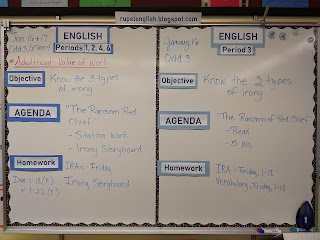 rupelenglish.blogspot.com
Jan 16+17
Odd 3/Even 4
ENGLISH
Periods 1, 2, 4, 6
* Adulthood - Value of Work
Objective
Know the 3 types
of irony
AGENDA
"The Ransom of Red
Chief"
- Station Work
- Irony Storyboard
Homework
IRA - Friday
Due 1-18 (F)
Irony Storyboard
January 16
Odd 3
ENGLISH
Period 3
Objective
Know the 3 types
of irony
AGENDA
"The Ransom of Red Chief"
- Read
- 5 Ws
Homework
IRA - Friday, 1-18
Vocabulary, Friday, 1-18